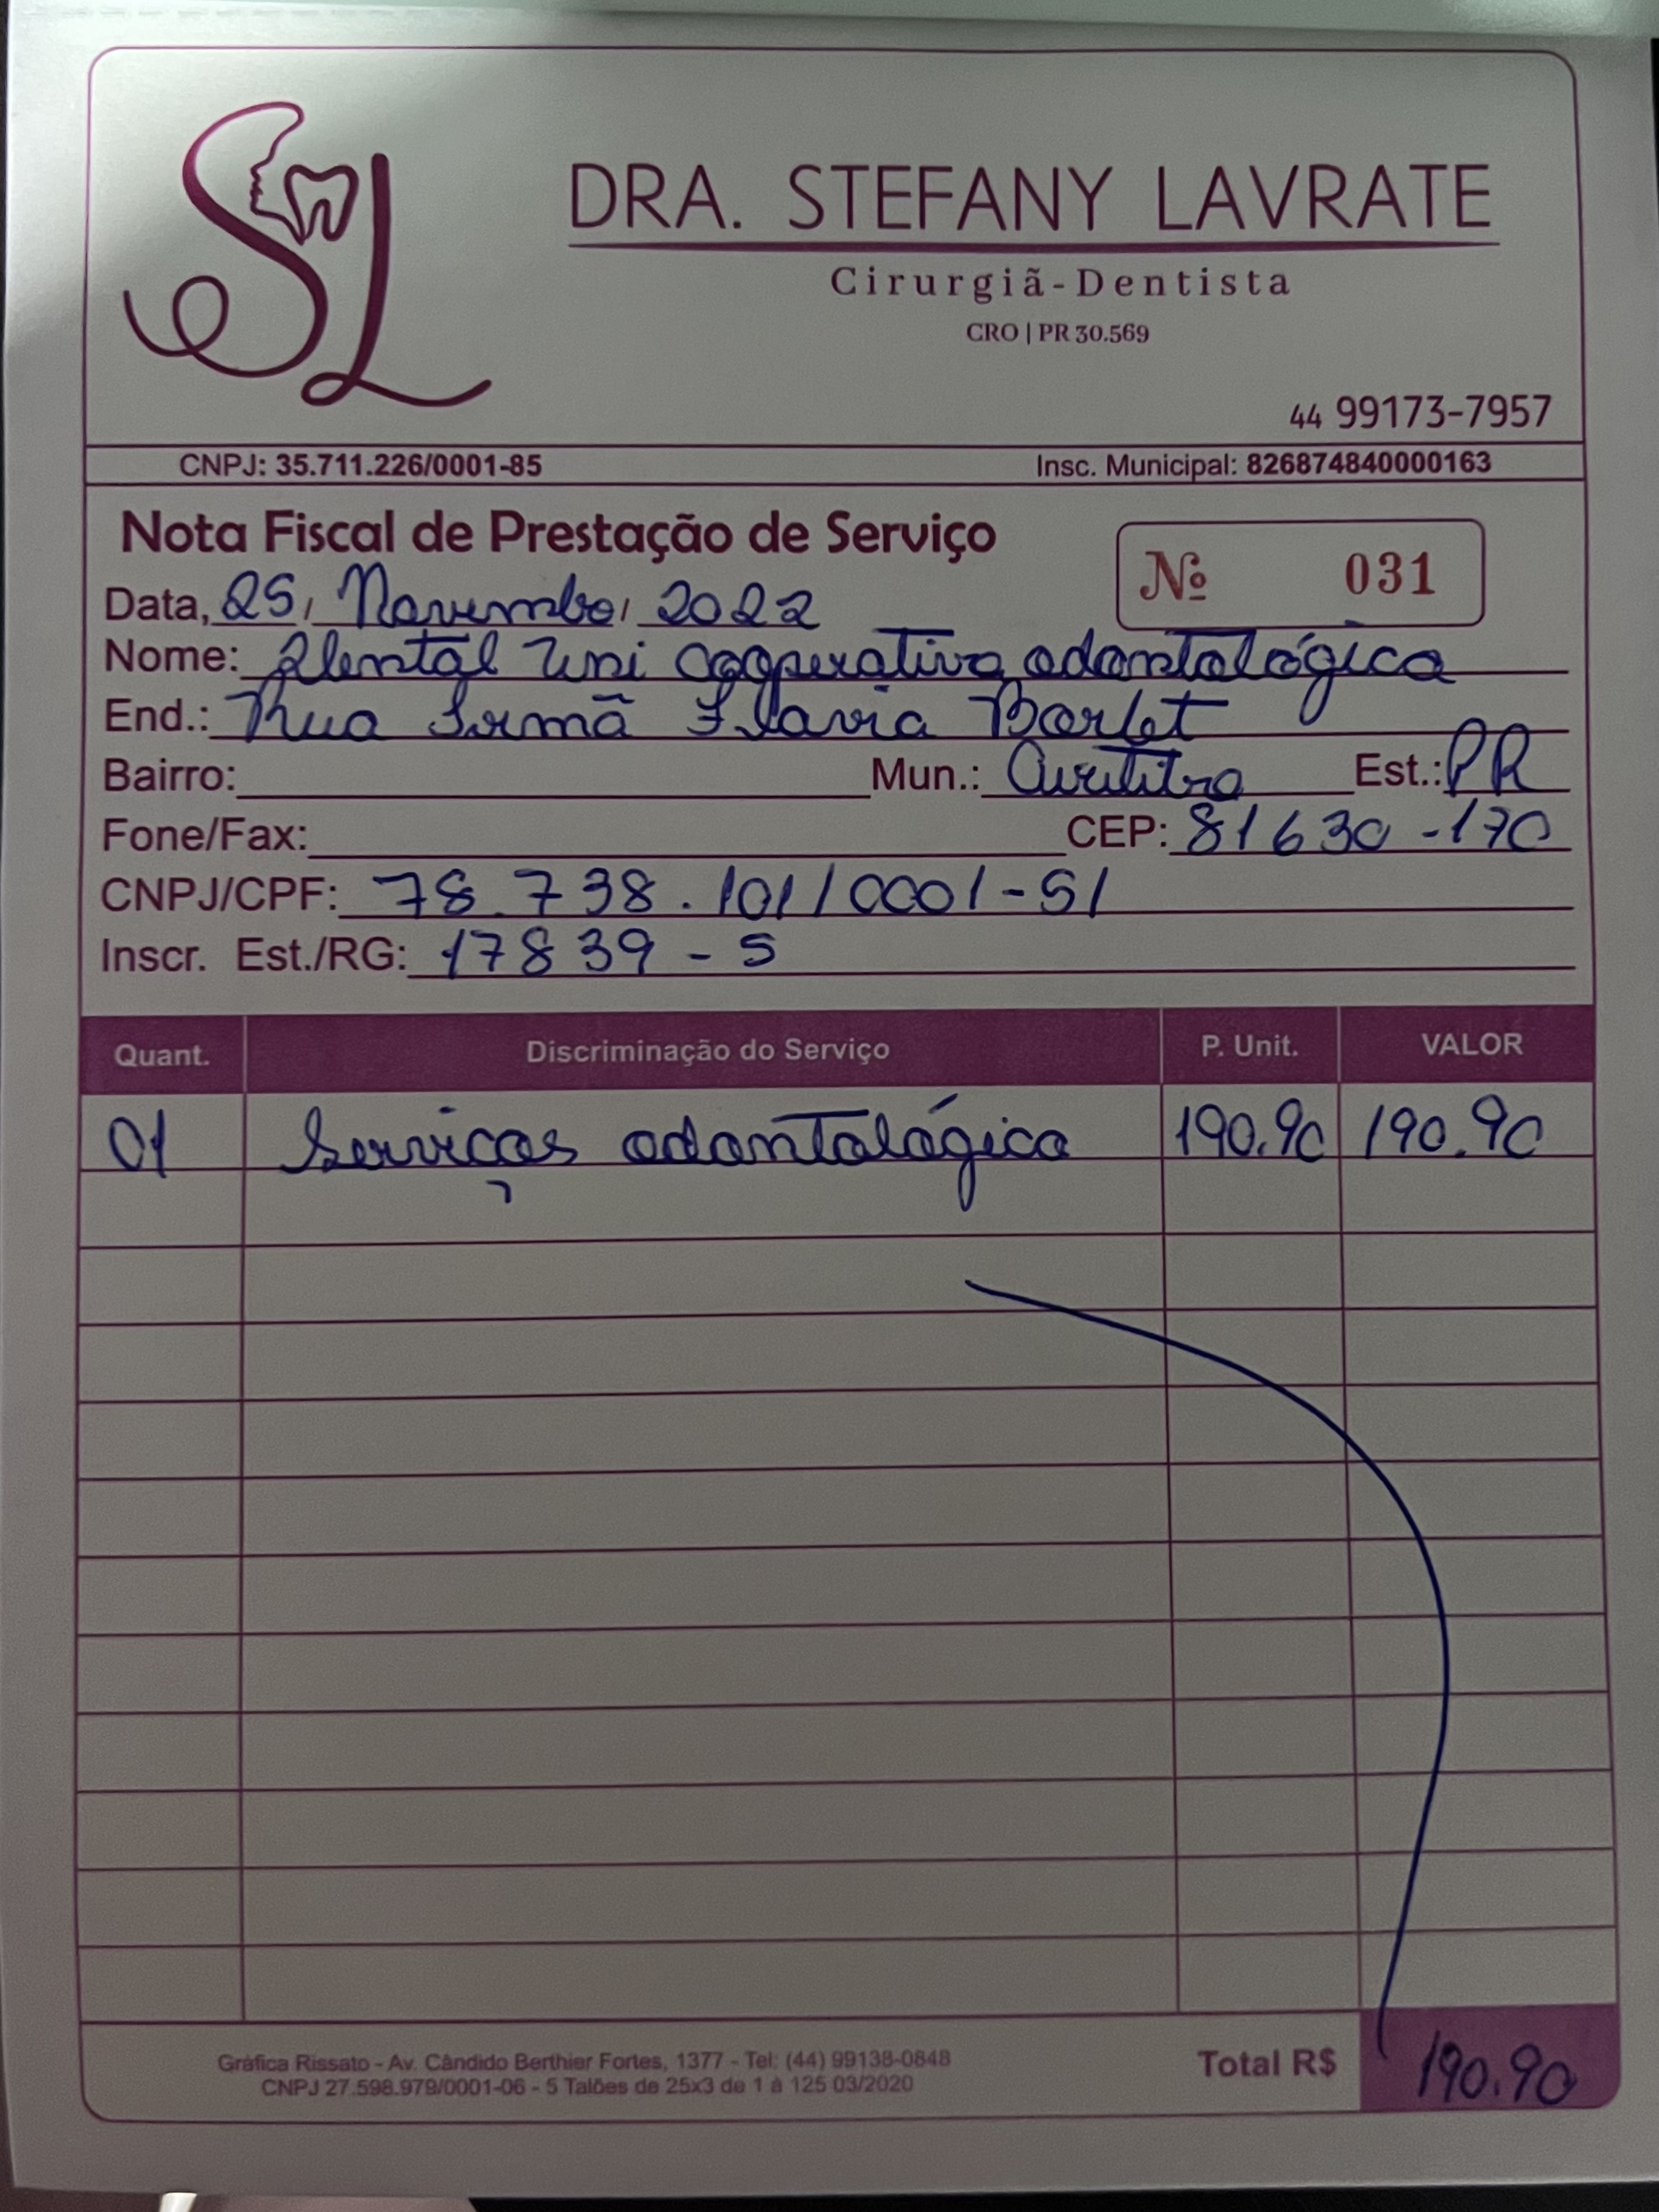 SL
DRA. STEFANY LAVRATE
Cirurgiã-Dentista
CRO | PR 30.569
44 99173-7957
CNPJ: 35.711.226/0001-85 Insc. Municipal: 826874840000163
Nota Fiscal de Prestação de Serviço Nº 031
Data, 25, Novembo, 2022
Nome: Dental Uni Cooperativa odontológica
End.: Rua Irmã Flavia Borlet
Bairro: Mun.: Curitiba Est.: PR
Fone/Fax: CEP: 81630-170
CNPJ/CPF: 78.738.101/0001-51
Inscr. Est./RG: 17839-5
Quant. Discriminação do Serviço P. Unit. VALOR
01 Serviços odontológico 190.90 190.90
Gráfica Rissato - Av. Cândido Berthier Fortes, 1377 - Tel: (44) 99138-0848
CNPJ 27.598.979/0001-06 - 5 Talões de 25x3 de 1 à 125 03/2020
Total R$ 190.90